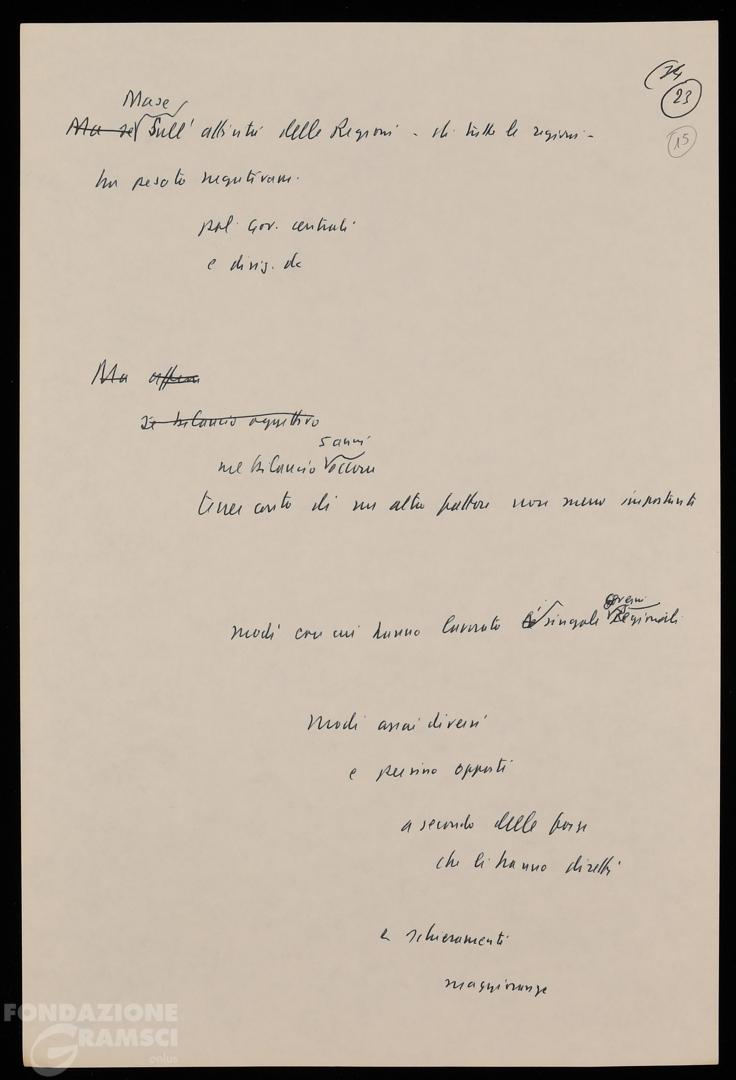 24
23
15
Ma se
Ma se Sull'attività delle Regioni - di tutte le regioni -
ha pesato negativam.
pol. Gov. centrali
e dirig. da
Ma
se bilancio oggettivo
5 anni
nel bilancio occorre
tener conto di un altro fattore non meno importante
governi
modi con cui hanno lavorato i singoli Regionali
modi assai diversi
e persino opposti
a secondo delle forze
che li hanno diretti
e schieramenti
maggioranze
FONDAZIONE
GRAMSCI
onlus